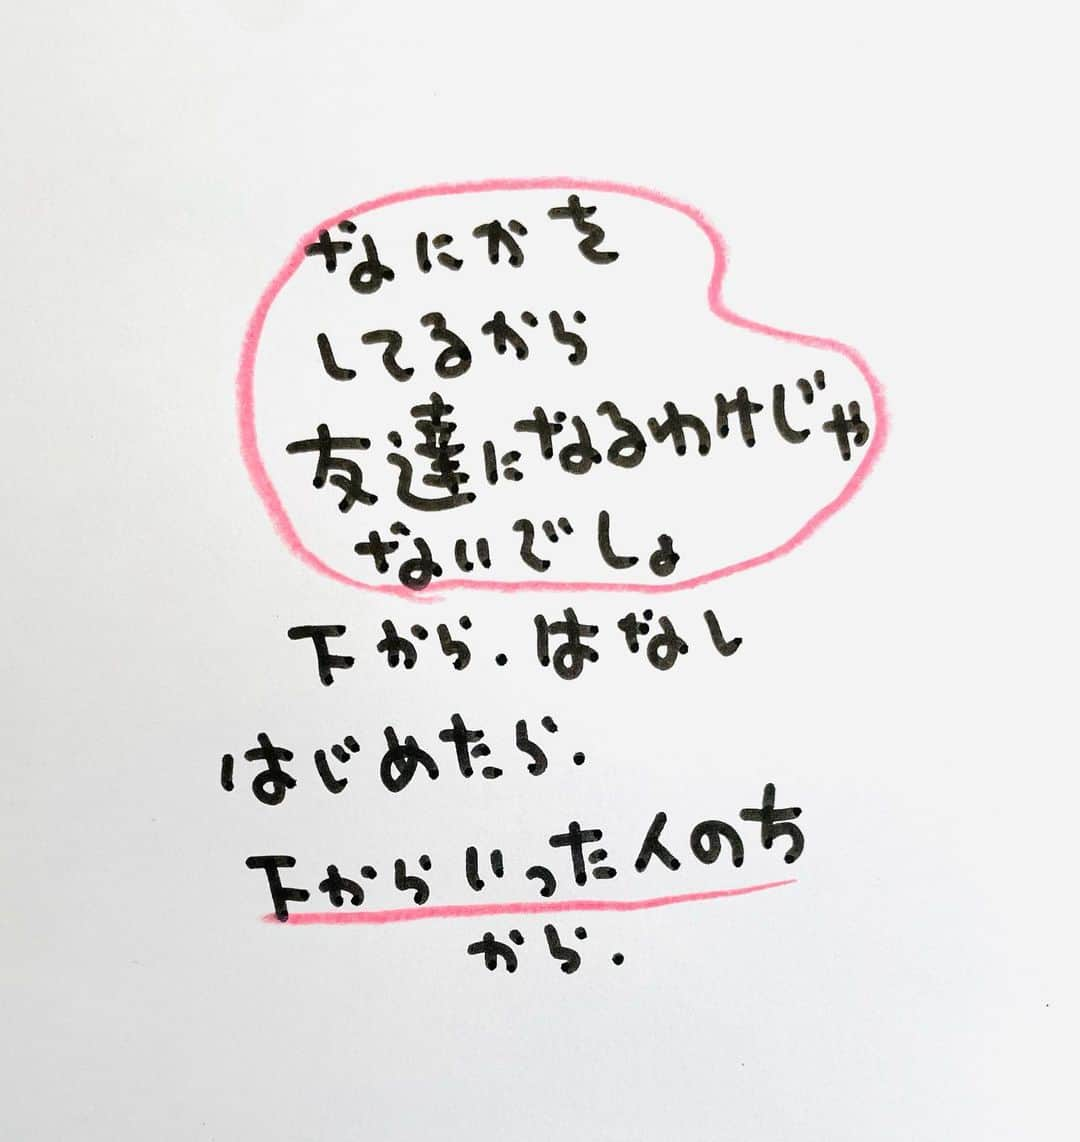 なにかを
してるから
友達になるわけじゃ
ないでしょ
下から.はなし
はじめたら.
下からいった人のち
から.